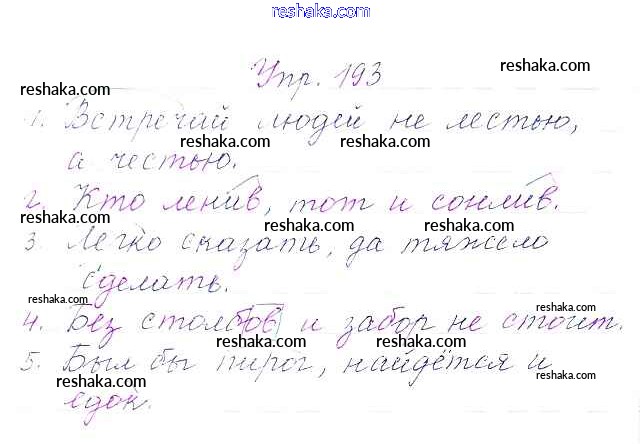 reshaka.com
Упр. 193
reshaka.com
reshaka.com
1. Встречай людей не лестью,
reshaka.com
а честью.
reshaka.com
2. Кто ленив, тот и сонлив.
reshaka.com
reshaka.com
3. Легко сказать, да тяжело
reshaka.com
сделать.
reshaka.com
reshaka.com
4. Без столбов и забор не стоит.
reshaka.com
5. Был бы пирог, найдётся и
reshaka.com
reshaka.com
едок.
reshaka.com